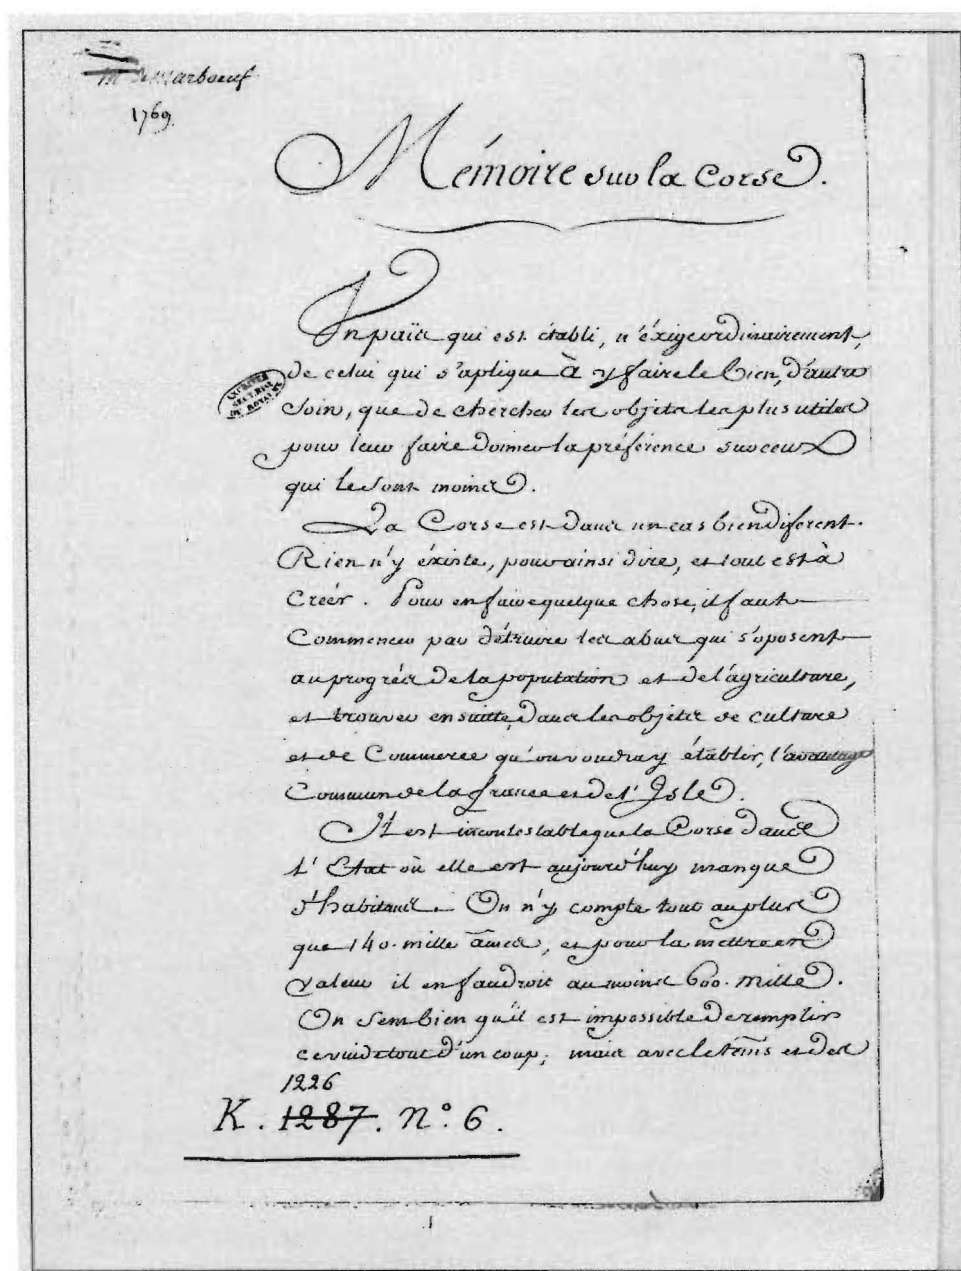 Mr de Marboeuf
1769.
Mémoire sur la Corse.
Un païs qui est établi, n'éxige ordinairement,
de celui qui s'aplique à y faire le bien, d'autre
soin, que de chercher les objets les plus utiles
pour leur faire donner la préférence sur ceux
qui le sont moins.
La Corse est dans un cas bien diférent.
Rien n'y éxiste, pour ainsi dire, et tout est à
créér. Pour en faire quelque chose, il faut
Commencer par détruire les abus qui s'oposent
au progrès de la population et de l'agriculture,
et trouver ensuitte, dans les objets de culture
et de Commerce qu'on voudra y établir, l'avantage
Commun de la france et de l'Isle.
Il est incontestable que la Corse dans
l'Etat où elle est aujourd'huy manque
d'habitans. On n'y compte tout au plus
que 140. mille âmes, et pour la mettre en
valeur il en faudroit au moins 600. mille.
On sent bien qu'il est impossible de remplir
ce vuide tout d'un coup; mais avec le téms et des
1226
K. 1287. N.° 6.
1